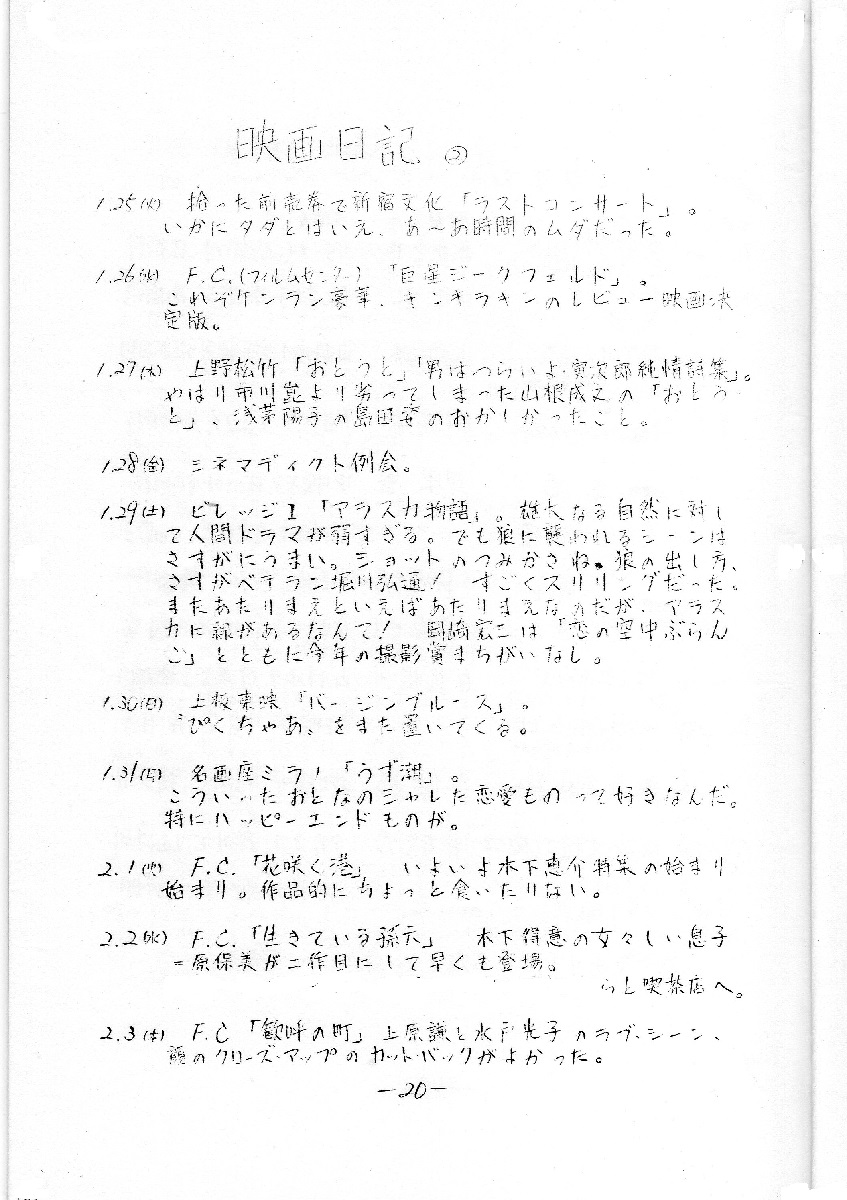 映画日記 ②
1.25(火) 拾った前売券で新宿文化「ラストコンサート」。
いかにタダとはいえ、あ〜あ時間のムダだった。
1.26(水) F.C.(フィルムセンター)「巨星ジーグフェルド」。
これぞケンラン豪華、キンキラキンのレビュー映画決
定版。
1.27(木) 上野松竹「おとうと」「男はつらいよ・寅次郎純情詩集」。
やはり市川崑より劣ってしまった山根成之の「おとう
と」、浅茅陽子の島田姿のおかしかったこと。
1.28(金) シネマディクト例会。
1.29(土) ビレッジ1「アラスカ物語」。雄大なる自然に対し
て人間ドラマが弱すぎる。でも狼に襲われるシーンは
さすがにうまい。ショットのつみかさね、狼の出し方、
さすがベテラン堀川弘通! すごくスリリングだった。
またあたりまえといえばあたりまえなのだが、アラス
カに緑があるなんて! 岡崎宏三は「恋の空中ぶらん
こ」とともに今年の撮影賞まちがいなし。
1.30(日) 上板東映「バージンブルース」。
"ぴくちゃあ"をまた置いてくる。
1.31(月) 名画座ミラノ「うず潮」。
こういったおとなのシャレた恋愛ものって好きなんだ。
特にハッピーエンドものが。
2.1(火) F.C.「花咲く港」 いよいよ木下恵介特集の始まり
始まり。作品的にちょっと食いたりない。
2.2(水) F.C.「生きている孫六」 木下得意の女々しい息子
=原保美が二作目にして早くも登場。
らと喫茶店へ。
2.3(木) F.C「歓呼の町」上原謙と水戸光子のラブ・シーン、
顔のクローズ・アップのカット・バックがよかった。
—20—